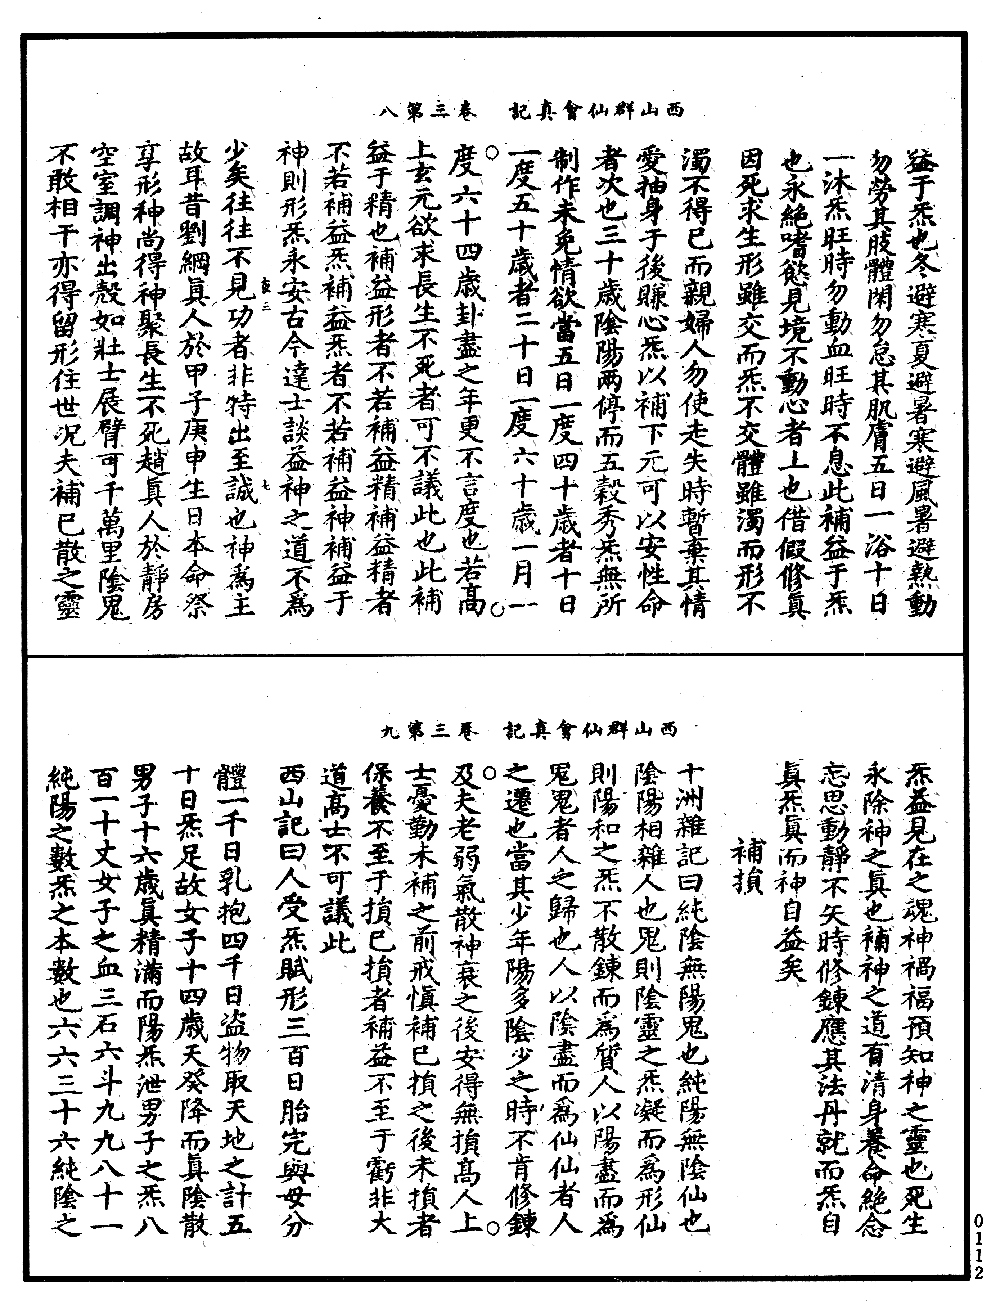 西山群仙會真記　卷三第八
益于炁也冬避寒夏避暑寒避風暑避熱動
勿勞其肢體閑勿怠其肌膚五日一浴十日
一沐炁旺時勿動血旺時不息此補益于炁
也永絕嗜慾見境不動心者上也借假修眞
因死求生形雖交而炁不交體雖濁而形不
濁不得已而親婦人勿使走失時暫棄其情
愛抽身于後賺心炁以補下元可以安性命
者次也三十歲陰陽兩停而五穀秀炁無所
制作未免情欲當五日一度四十歲者十日
一度五十歲者二十日一度六十歲一月一
度六十四歲卦盡之年更不言度也若高
上玄元欲求長生不死者可不議此也此補
益于精也補益形者不若補益精補益精者
不若補益炁補益炁者不若補益神補益于
神則形炁永安古今達士談益神之道不爲
少矣往往不見功者非特出至誠也神爲主
故耳昔劉綱眞人於甲子庚申生日本命祭
享形神尚得神聚長生不死趙眞人於靜房
空室調神出殼如壯士展臂可千萬里陰鬼
不敢相干亦得留形住世況夫補已散之靈
西山群仙會真記　卷三第九
炁益見在之魂神禍福預知神之靈也死生
永除神之眞也補神之道有清身養命絕念
忘思動靜不失時修鍊應其法丹就而炁自
眞炁眞而神自益矣
補損
十洲雜記曰純陰無陽鬼也純陽無陰仙也
陰陽相雜人也鬼則陰靈之炁凝而爲形仙
則陽和之炁不散鍊而爲質人以陽盡而爲
鬼鬼者人之歸也人以陰盡而爲仙仙者人
之遷也當其少年陽多陰少之時不肯修鍊
及夫老弱氣散神衰之後安得無損高人上
士憂勤未補之前戒愼補已損之後未損者
保養不至于損已損者補益不至于虧非大
道高士不可議此
西山記曰人受炁賦形三百日胎完與母分
體一千日乳抱四千日盜物取天地之計五
十日炁足故女子十四歲天癸降而眞陰散
男子十六歲眞精滿而陽炁泄男子之炁八
百一十丈女子之血三石六斗九九八十一
純陽之數炁之本數也六六三十六純陰之
0112